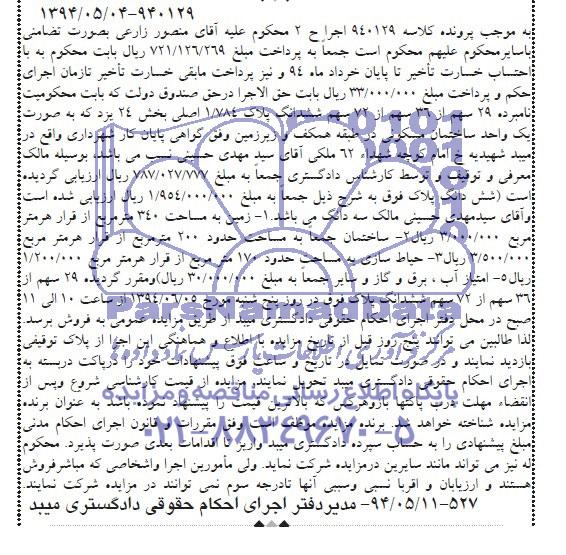 ۱۳۹۴/۰۵/۰۴-۹۴۰۱۲۹
به موجب پرونده کلاسه ۹۴۰۱۲۹ اجرا ح ۲ محکوم علیه آقای منصور زارعی بصورت تضامنی
باسایرمحکوم علیهم محکوم است جمعا به پرداخت مبلغ ۷۲۱/۱۲۶/۲۶۹ ریال بابت محکوم به با
احتساب خسارت تأخیر تا پایان خرداد ماه ۹۴ و نیز پرداخت مابقی خسارت تأخیر تازمان اجرای
حکم و پرداخت مبلغ ۳۳/۰۰۰/۰۰۰ ریال بابت حق الاجرا درحق صندوق دولت که بابت محکومیت
نامبرده ۲۹ سهم از ۳۶ سهم از ۷۲ سهم ششدانگ پلاک ۱/۷۸۴ اصلی بخش ۲۴ یزد که به صورت
یک واحد ساختمان مسکونی در طبقه همکف و زیرزمین وفق گواهی پایان کار شهرداری واقع در
میبد شهیدیه خ امام کوچه شهداء ۶۲ ملکی آقای سید مهدی حسینی می باشد بوسیله مالک
معرفی و توقیف و توسط کارشناس دادگستری جمعاً به مبلغ ۷۸۷/۰۲۷/۷۷۷ ریال ارزیابی گردیده
است (شش دانگ پلاک فوق به شرح ذیل جمعاً به مبلغ ۱/۹۵۴/۰۰۰/۰۰۰ ریال ارزیابی شده است
وآقای سیدمهدی حسینی مالک سه دانگ می باشد.۱- زمین به مساحت ۳۴۰ مترمربع از قرار هرمتر
مربع ۳/۰۰۰/۰۰۰ ریال۲- ساختمان جمعاً به مساحت حدود ۲۰۰ مترمربع از قرار هرمتر مربع
۳/۵۰۰/۰۰۰ ریال۳- حیاط سازی به مساحت حدود ۱۷۰ متر مربع از قرار هرمتر مربع ۱/۲۰۰/۰۰۰
ریال۵- امتیاز آب ، برق و گاز و سایر جمعاً به مبلغ ۳۰/۰۰۰/۰۰۰ ریال)ومقرر گردیده ۲۹ سهم از
۳۶ سهم از ۷۲ سهم ششدانگ پلاک فوق در روز پنج شنبه مورخ ۱۳۹۴/۰۶/۰۵ از ساعت ۱۰ الی ۱۱
صبح در محل دفتر اجرای احکام حقوقی دادگستری میبد از طریق مزایده عمومی به فروش برسد.
لذا طالبین می توانند پنج روز قبل از تاریخ مزایده با اطلاع و هماهنگی این اجرا از پلاک توقیفی
بازدید نمایند و در صورت تمایل در تاریخ و ساعت فوق پیشنهادات خود را درپاکت دربسته به
اجرای احکام حقوقی دادگستری میبد تحویل نمایند، مزایده از قیمت کارشناسی شروع وپس از
انقضاء مهلت درب پاکتها بازوهرکس که بالاترین قیمت را پیشنهاد نموده باشد به عنوان برنده
مزایده شناخته خواهد شد. برنده مزایده موظف است وفق مقررات و قانون اجرای احکام مدنی
مبلغ پیشنهادی را به حساب سپرده دادگستری میبد واریز تا اقدامات بعدی صورت پذیرد. محکوم
له نیز می تواند مانند سایرین درمزایده شرکت نماید. ولی مأمورین اجرا واشخاصی که مباشرفروش
هستند و ارزیابان و اقربا نسبی وسببی آنها تادرجه سوم نمی توانند در مزایده شرکت نمایند
۹۴/۰۵/۱۱-۵۲۷- مدیردفتر اجرای احکام حقوقی دادگستری میبد
ParsNamadData
مرکز فرآوری اطلاعات پارس نماد داده ها
پایگاه اطلاع رسانی مناقصه و مزایده
۰۲۱-۸۸۳۴۹۶۷۰-۵